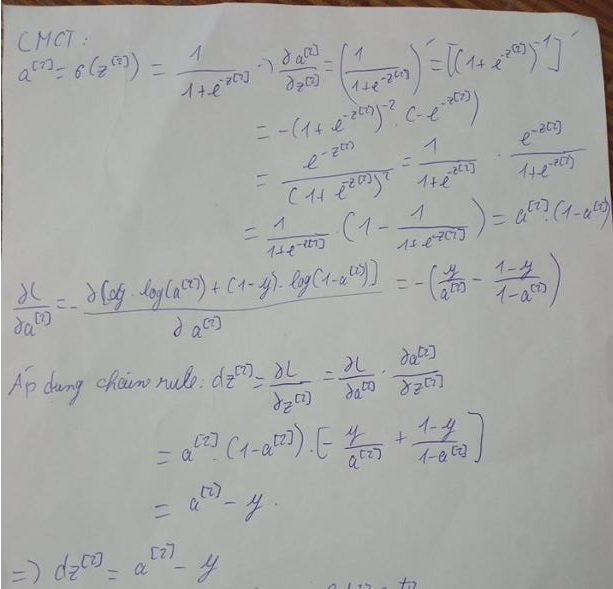 CMCT:
a^[2] = σ(z^[2]) = 1/(1+e^-z[2]) → ∂a^[2]/∂z^[2] = (1/(1+e^-z[2]))' = [(1+e^-z[2])^-1]'
= -(1+e^-z[2])^-2 . (-e^-z[2])
= e^-z[2]/(1+e^-z[2])^2 = 1/(1+e^-z[2]) . e^-z[2]/(1+e^-z[2])
= 1/(1+e^-z[2]) . (1 - 1/(1+e^-z[2])) = a^[2] . (1-a^[2])
∂L/∂a^[2] = - ∂[y . log(a^[2]) + (1-y) . log(1-a^[2])]/∂a^[2] = -(y/a^[2] - (1-y)/(1-a^[2]))
Áp dụng chain rule: dz^[2] = ∂L/∂z^[2] = ∂L/∂a^[2] . ∂a^[2]/∂z^[2]
= a^[2] . (1-a^[2]) . [- y/a^[2] + (1-y)/(1-a^[2])]
= a^[2] - y .
=> dz^[2] = a^[2] - y